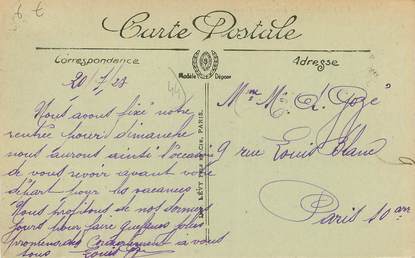 6 €
Carte Postale
Correspondance
Adresse
Modèle Déposé
LÉVY FILS & Cie, PARIS.
(44)
20/7/23
Nous avons fixé notre
rentrée pour dimanche
nous aurons ainsi l'occasion
de vous revoir avant votre
départ pour les vacances
Nous profitons de nos derniers
jours pour faire quelques jolies
promenades Cordialement à vous
tous Louis
Mme Mr A. Gozé
9 rue Louis Blanc
Paris 10 arr